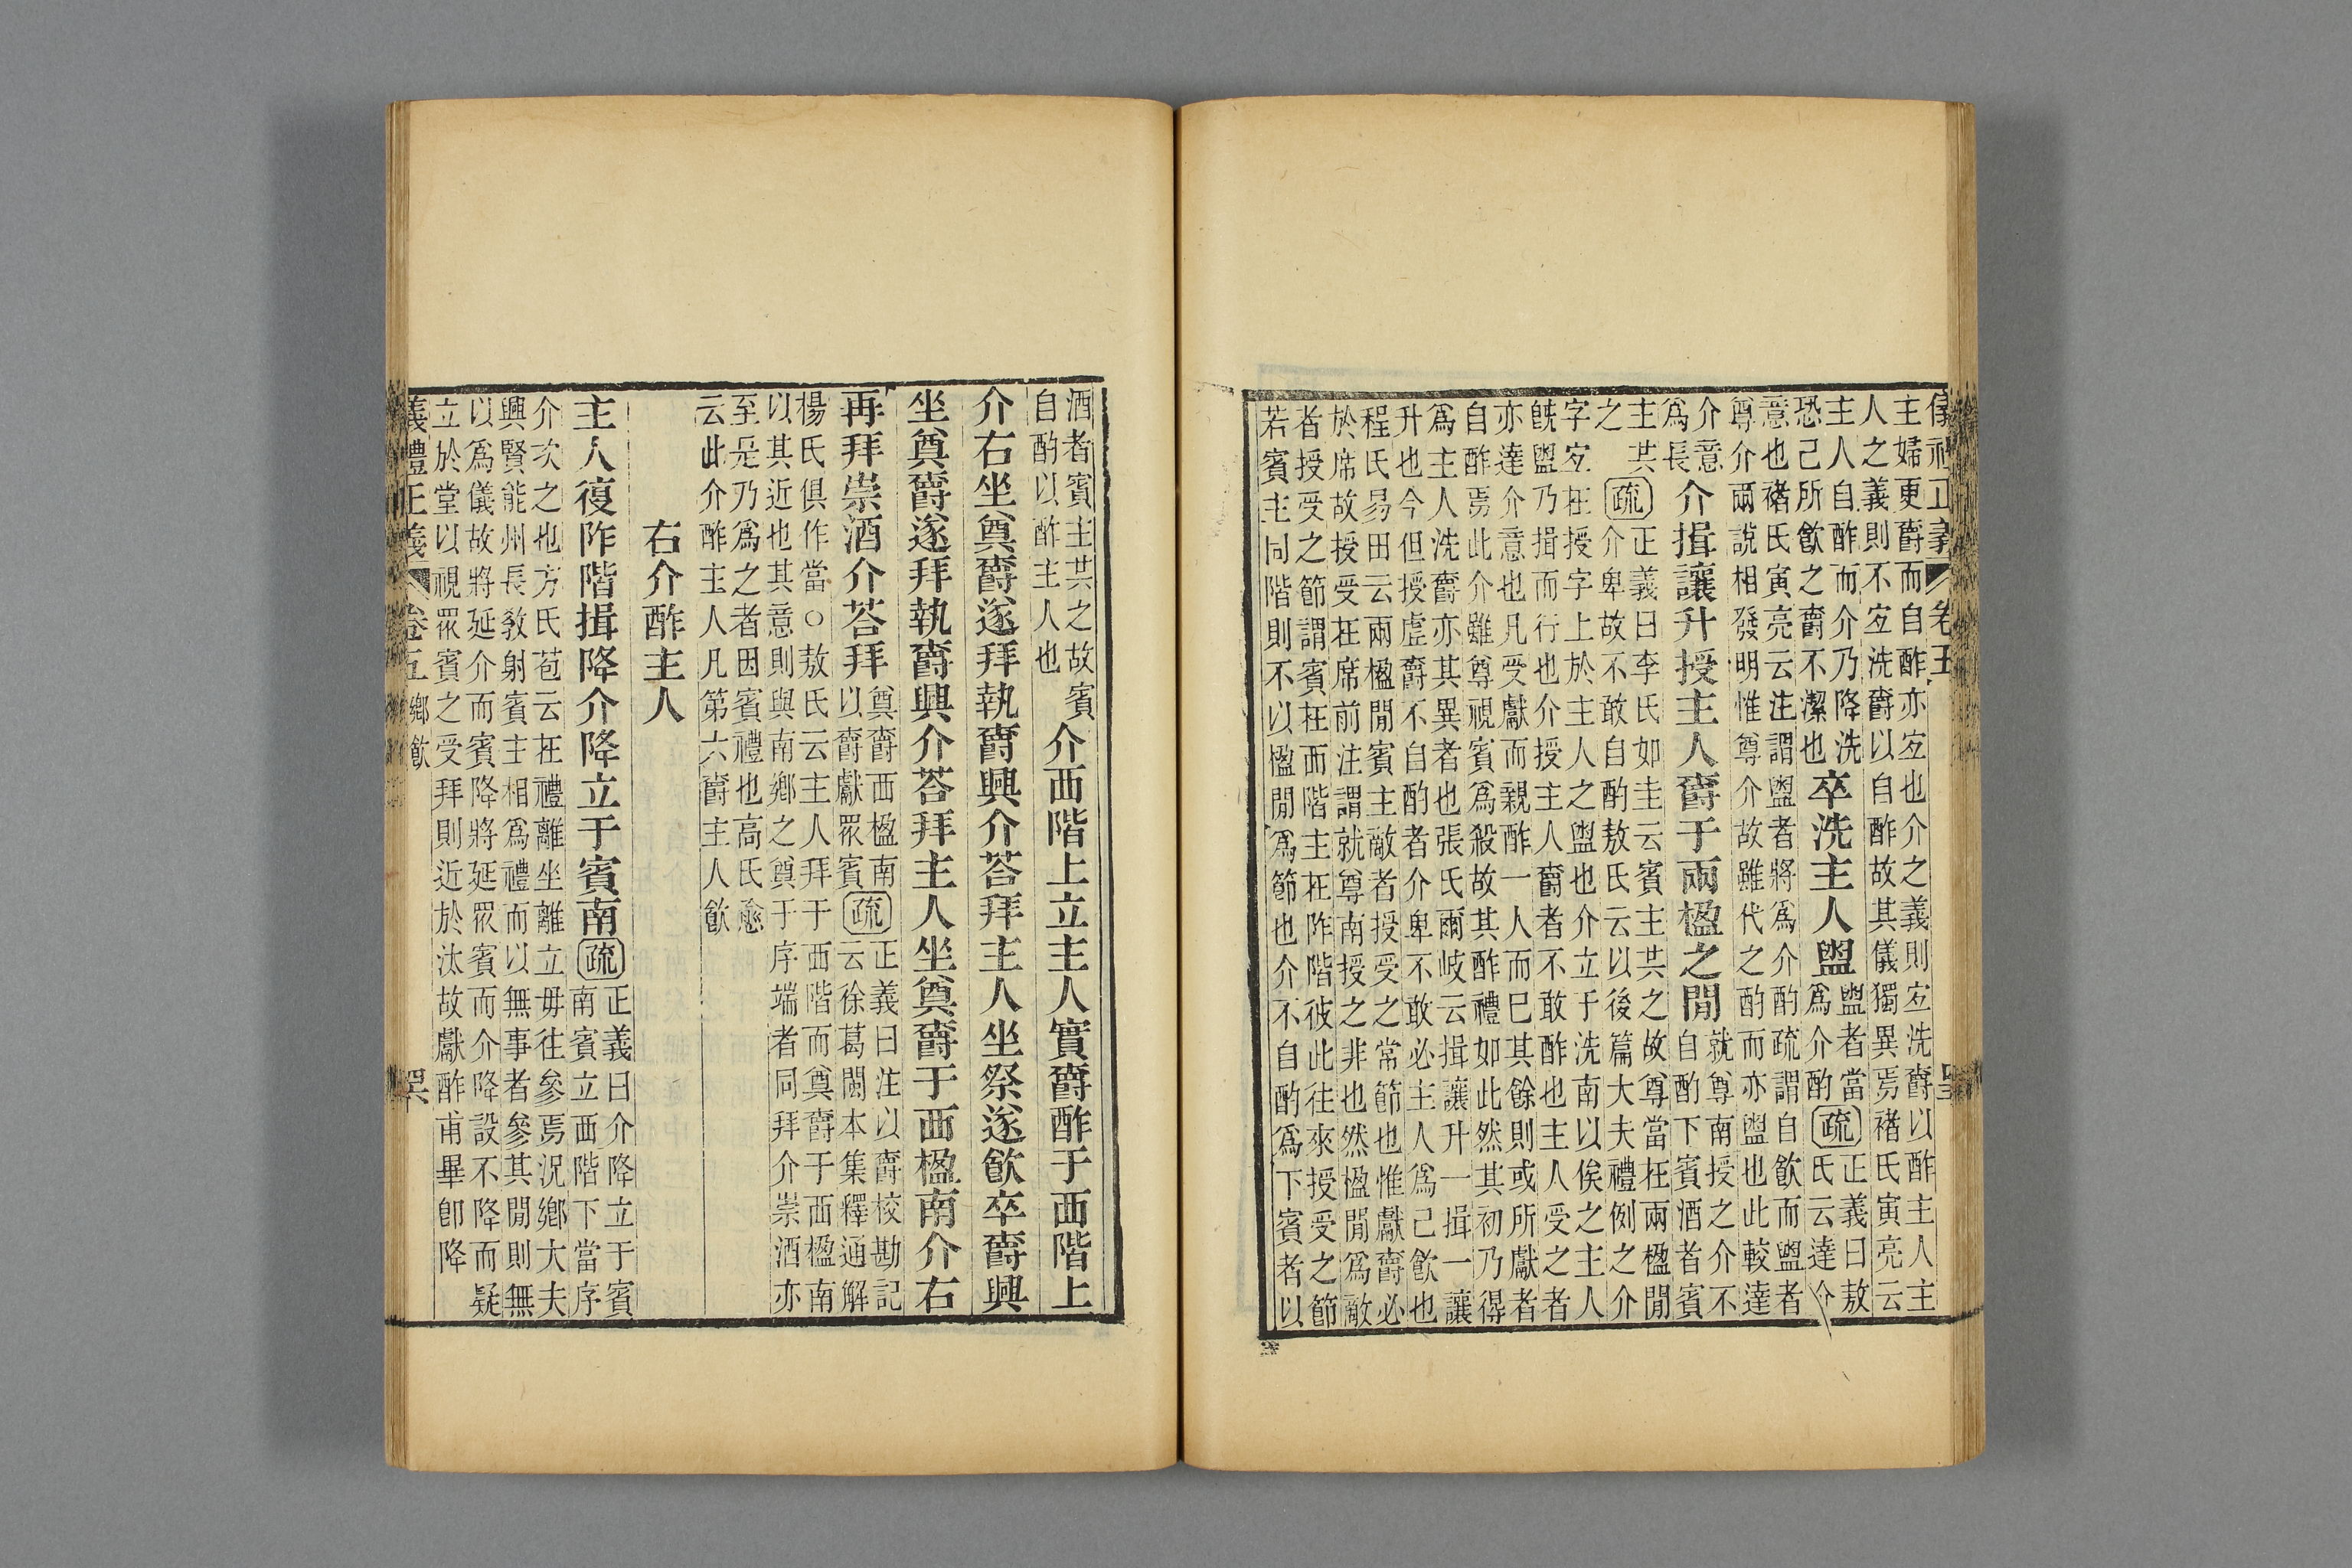 正義 卷五
主婦更爵而自酢亦宐也介之義則宐洗爵以酢主人主
人之義則不宐洗爵以自酢故其儀獨異焉褚氏寅亮云
主人自酢而介乃降洗
恐己所飮之爵不潔也
卒洗主人盥
盥者當
爲介酌
疏
正義曰敖
氏云達介
意也褚氏寅亮云注謂盥者將爲介酌疏謂自飮而盥者
尊介兩說相發明惟尊介故雖代之酌而亦盥也此較達
介意
爲長
介揖讓升授主人爵于兩楹之閒
就尊南授之介不
自酌下賓酒者賓
主共
之
疏
正義曰李氏如圭云賓主共之故尊當在兩楹閒
介卑故不敢自酌敖氏云以後篇大夫禮例之介
字宐在授字上於主人之盥也介立于洗南以俟之主人
旣盥乃揖而行也介授主人爵者不敢酢也主人受之者
亦達介意也凡受獻而親酢一人而已其餘則或所獻者
自酢焉此介雖尊視賓爲殺故其酢禮如此然其初乃得
爲主人洗爵亦其異者也張氏爾岐云揖讓升一揖一讓
升也今但授虛爵不自酌者介卑不敢必主人爲己飮也
程氏易田云兩楹閒賓主敵者授受之常節也惟獻爵必
於席故授受在席前注謂就尊南授之非也然楹閒爲敵
者授受之節謂賓在西階主在阼階彼此往來授受之節
若賓主同階則不以楹閒爲節也介不自酌爲下賓者以
酒者賓主共之故賓
自酌以酢主人也
介西階上立主人實爵酢于西階上
介右坐奠爵遂拜執爵興介荅拜主人坐祭遂飮卒爵興
坐奠爵遂拜執爵興介荅拜主人坐奠爵于西楹南介右
再拜崇酒介荅拜
奠爵西楹南
以爵獻眾賓
疏
正義曰注以爵校勘記
云徐葛閩本集釋通解
楊氏俱作當○敖氏云主人拜于西階而奠爵于西楹南
以其近也其意則與南鄉之奠于序端者同拜介崇酒亦
至是乃爲之者因賓禮也高氏愈
云此介酢主人凡第六爵主人飮
右介酢主人
主人復阼階揖降介降立于賓南
疏
正義曰介降立于賓
南賓立西階下當序
介次之也方氏苞云在禮離坐離立毋往參焉況鄉大夫
興賢能州長敎射賓主相爲禮而以無事者參其閒則無
以爲儀故將延介而賓降將延眾賓而介降設不降而疑
立於堂以視眾賓之受拜則近於汰故獻酢甫畢卽降
禮正義 卷五 鄉飮